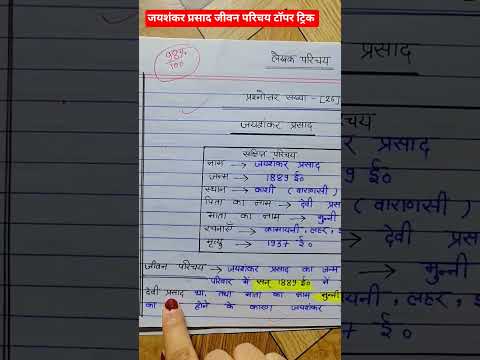 जयशंकर प्रसाद जीवन परिचय टॉपर ट्रिक
98%
100
लेखक परिचय
प्रश्नोत्तर संख्या - [26]
जयशंकर प्रसाद
संक्षिप्त परिचय
नाम → जयशंकर प्रसाद
जन्म → 1889 ई०
स्थान → काशी ( वाराणसी )
पिता का नाम → देवी प्रसा
माता का नाम → मुन्नी
रचनाएँ → कामायनी, लहर,
मृत्यु → 1937 ई०
जीवन परिचय → जयशंकर प्रसाद का जन्म
परिवार में सन् 1889 ई० में
देवी प्रसाद था, तथा माता का नाम मुन्नी
का होने के कारण जयशंकर
प्रसाद
परिचय
प्रसाद
ई०
( वाराणसी )
देवी प्रस
मुन्नी
यनी, लहर,
ई०